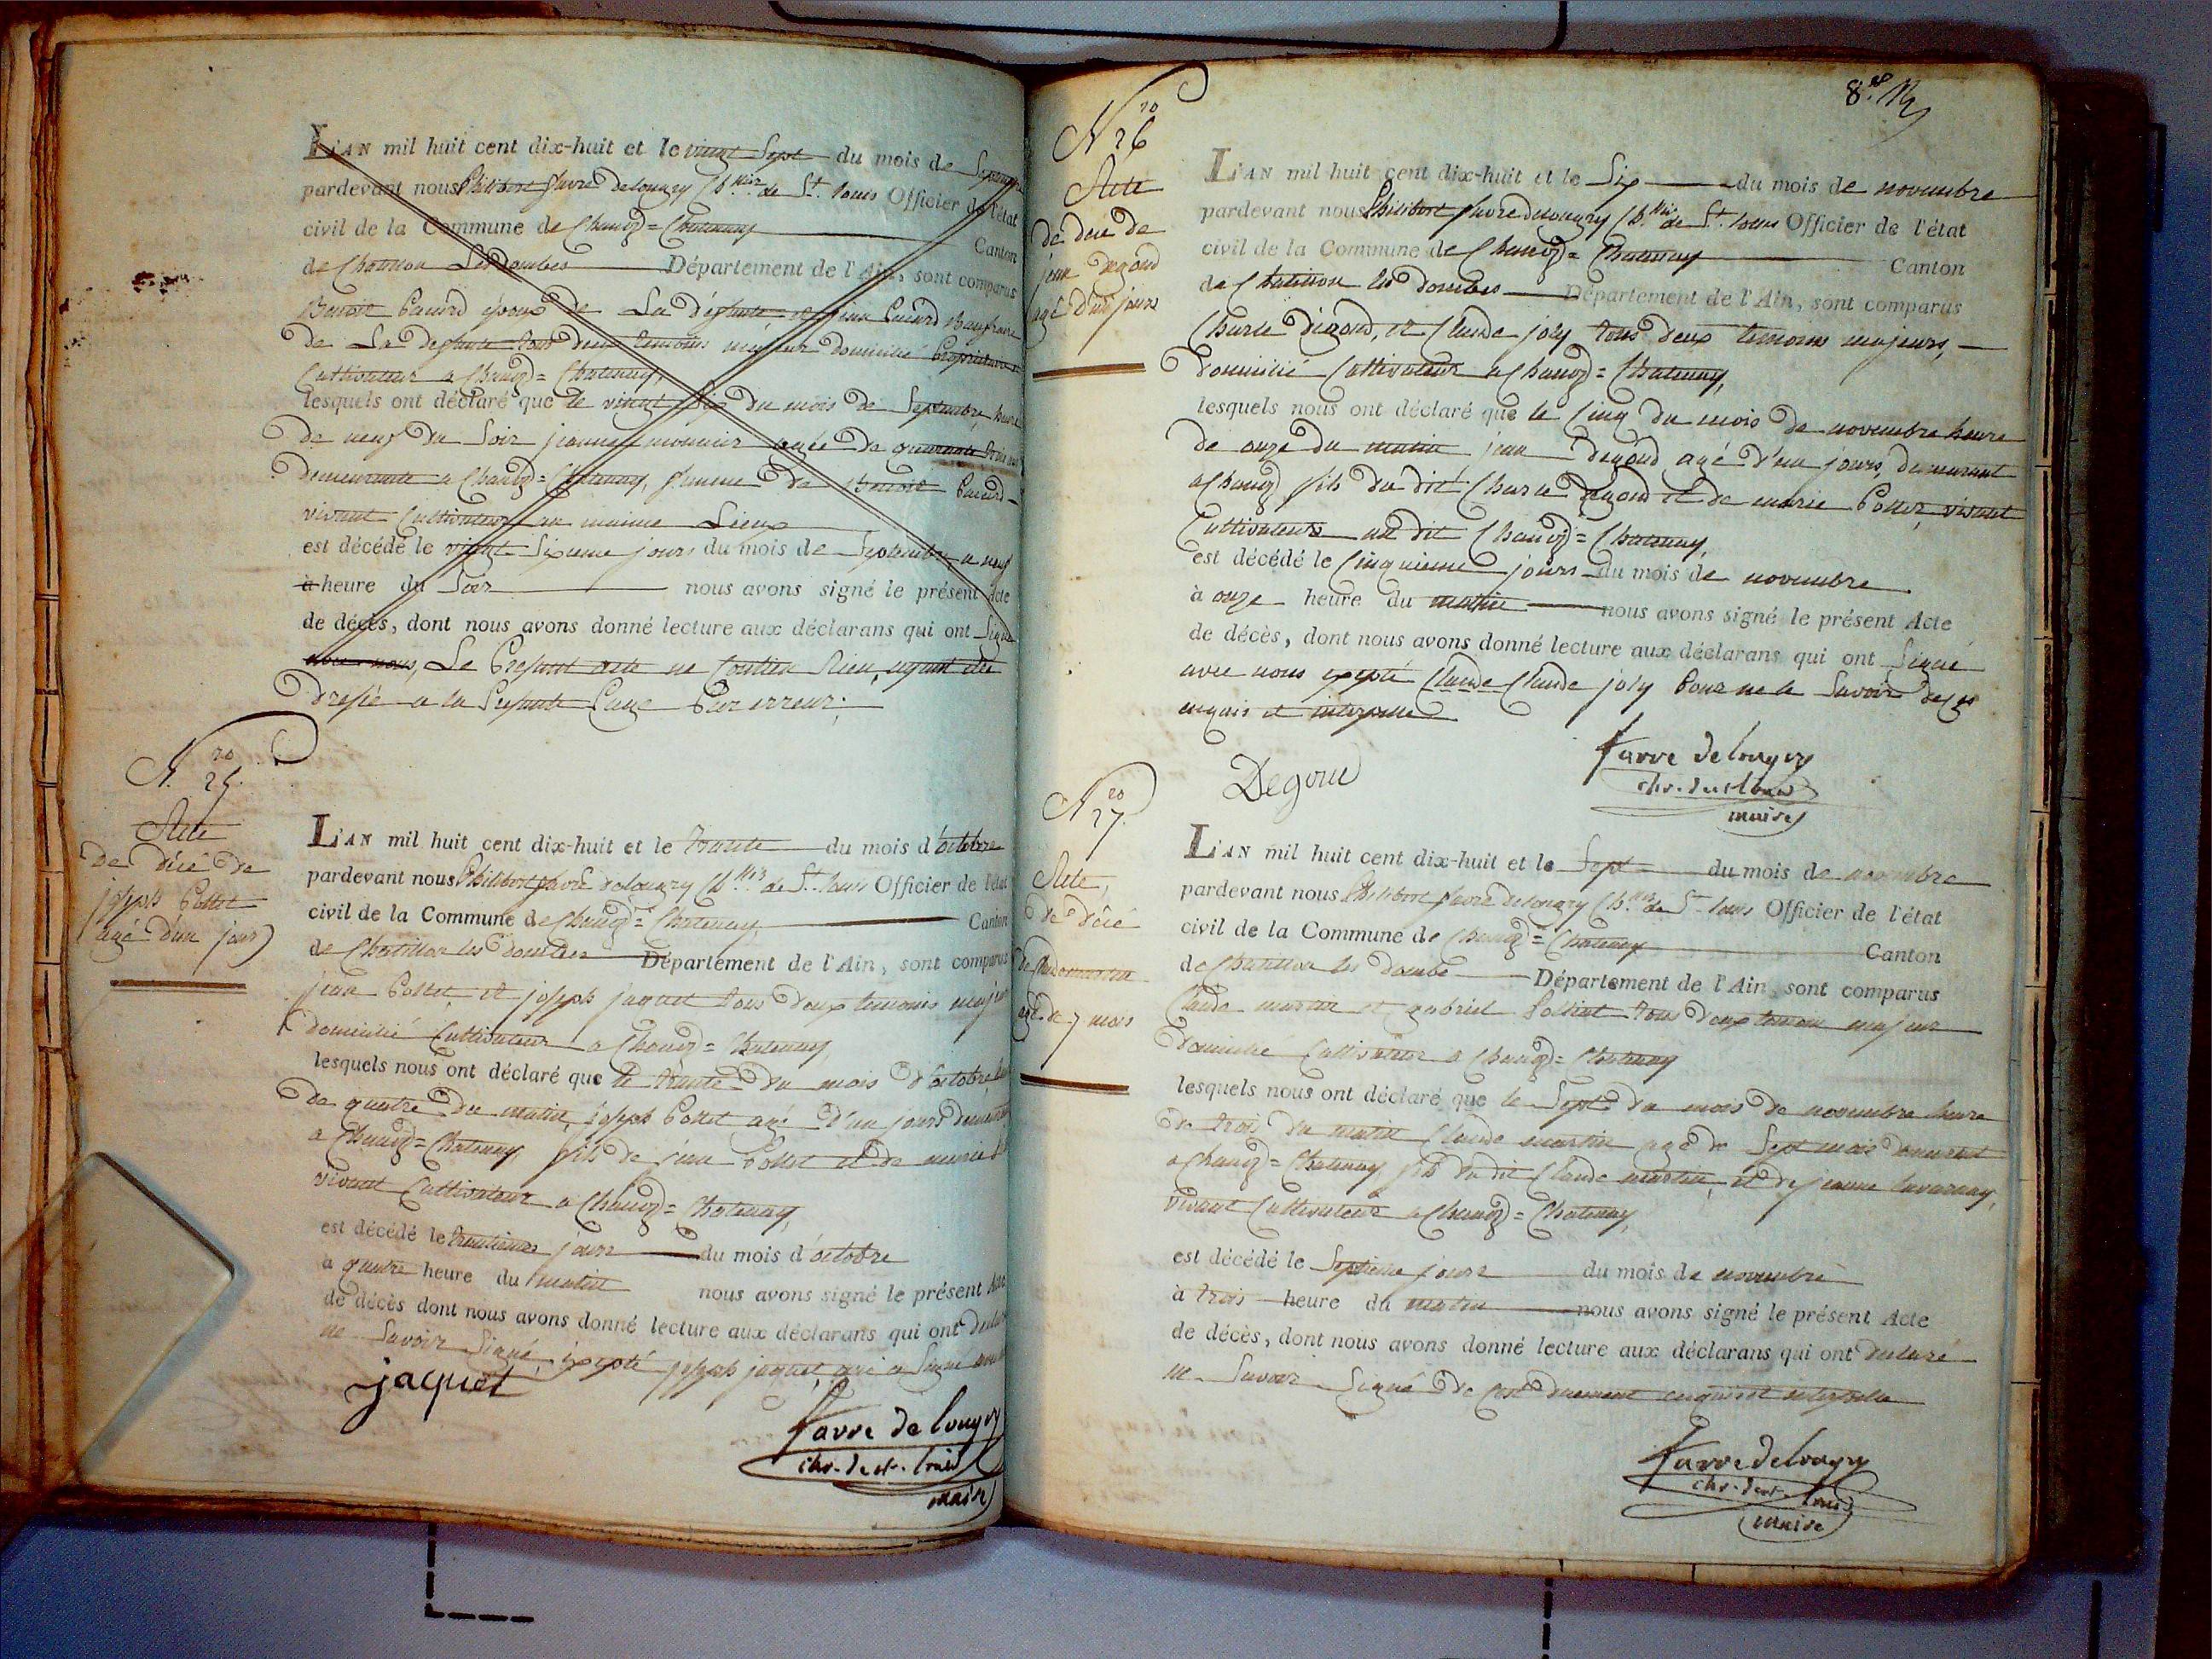 L'AN mil huit cent dix-huit et le vingt Sept du mois de Septembre
pardevant nous Philibert favre delongry Ch.er de St. Louis Officier de l'état
civil de la Commune de Chanoz = Chatenay Canton
de Chatillon Les Dombes Département de l'Ain, sont comparus
Benoit Pacard époux de La défunte et jean Pacard
de La defunte tous deux temoins majeur domicilié Propriétaires
Cultivateur a Chanoz = Chatenay,
lesquels ont déclaré que le vingt Six du mois de Septembre heure
de neuf du Soir jeanne monnier agée de quarante trois
demeurante a Chanoz = Chatenay, femme de Benoit Pacard
vivant Cultivateur au maime Lieux
est décédé le vingt Sixieme jours du mois de Septembre a neuf
à heure du Soir nous avons signé le présent Acte
de décès, dont nous avons donné lecture aux déclarans qui ont Signé
avec nous, Le Present acte ne Contien Rien, ayant été
Dressé a la Presente Page Par erreur;
N.ro 25.
Acte
de décé de
joseph Pottet
agé d'un jour
L'AN mil huit cent dix-huit et le trante du mois d'octobre
pardevant nous Philibert favre delongry Ch.er de St. Louis Officier de l'état
civil de la Commune de Chanoz = Chatenay Canton
de Chatillon les Dombes Département de l'Ain, sont comparus
jean Pottet et joseph jaquet tous deux temoins majeur
domicilié Cultivateur a Chanoz = Chatenay
lesquels nous ont déclaré que le trante du mois d'octobre
de quatre du matin, joseph Pottet agé d'un jours
a Chanoz = Chatenay fils de jean Pottet et de marie
vivant Cultivateur a Chanoz = Chatenay,
est décédé le trantieme jours du mois d'octobre
à quatre heure du matin nous avons signé le présent Acte
de décès dont nous avons donné lecture aux déclarans qui ont
ne Savoir Signé, excepté joseph jaquet qui a Signé
jacquet
favre de longry
chr. de st. louis
maire
8.e
N.ro 26
Acte
de décé de
jean Degoud
agé d'un jours
L'AN mil huit cent dix-huit et le Six du mois de novembre
pardevant nous Philibert favre delongry Ch.er de St. Louis Officier de l'état
civil de la Commune de Chanoz = Chatenay Canton
de Chatillon les Dombes Département de l'Ain, sont comparus
Charle Degoud, et Claude joly tous deux temoins majeurs,
Domicilié Cultivateur a Chanoz = Chatenay,
lesquels nous ont déclaré que le Cinq du mois de novembre heure
de onze du matin jean Degoud agé d'un jours, demeurant
a Chanoz fils du dit Charle Degoud et de marie Pottet, vivant
Cultivateurs au dit Chanoz = Chatenay,
est décédé le Cinquieme jours du mois de novembre
à onze heure du matin nous avons signé le présent Acte
de décès, dont nous avons donné lecture aux déclarans qui ont Signé
avec nous excepté Claude Claude joly Pour ne le Savoir de ce
enquis et interpellé
Degoud
favre de longry
chr. de st louis
maire
N.ro 27.
Acte,
de décé
de Claude martin
agé de 7 mois
L'AN mil huit cent dix-huit et le Sept du mois de novembre
pardevant nous Philibert favre delongry Ch.er de St. Louis Officier de l'état
civil de la Commune de Chanoz = Chatenay Canton
de Chatillon les Dombe Département de l'Ain, sont comparus
Claude martin et gabriel tous deux temoin majeur
Domicilié Cultivateur a Chanoz = Chatenay
lesquels nous ont déclaré que le Sept du mois de novembre heure
de trois du matin Claude martin agé de Sept mois demeurant
a Chanoz = Chatenay fils du dit Claude martin, et de jeanne
vivant Cultivateur a Chanoz = Chatenay,
est décédé le Septieme jours du mois de novembre
à trois heure du matin nous avons signé le présent Acte
de décès, dont nous avons donné lecture aux déclarans qui ont declaré
ne Savoir Signé de ce duement enquis et interpellé
favre de longry
chr. de st. louis
maire